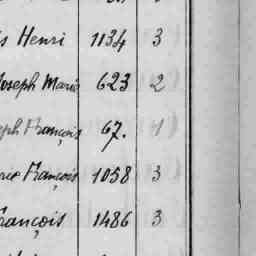 s Henri 1134 3
Joseph Marie 623 2
eph François 67. 1
rie François 1058 3
François 1486 3